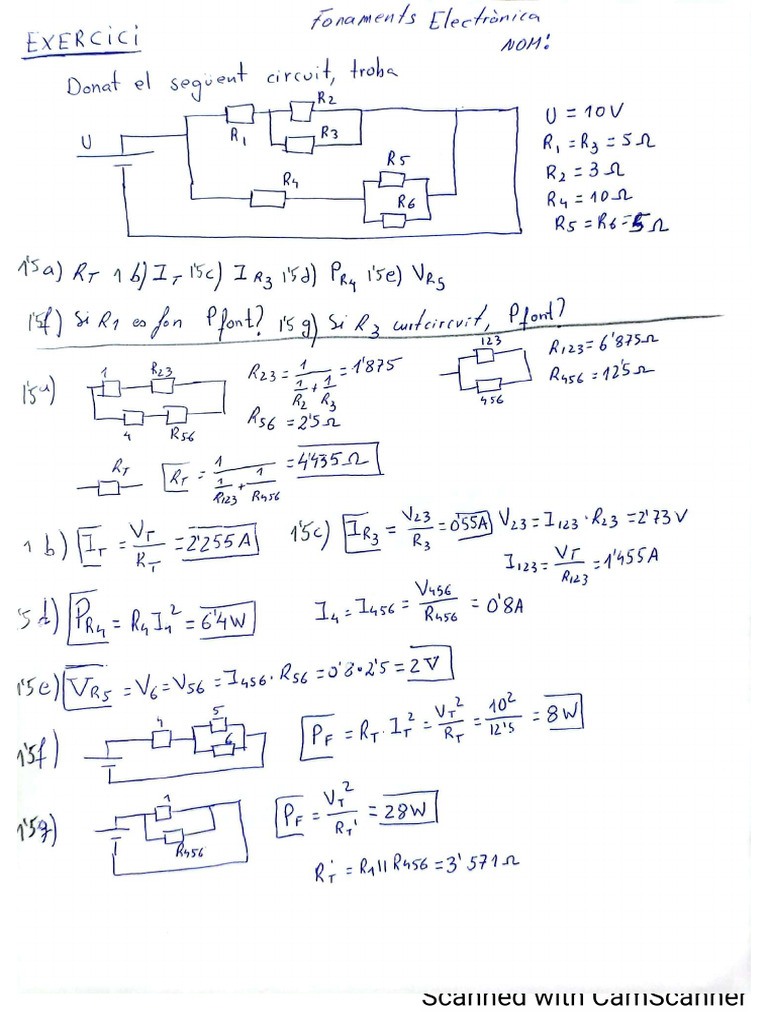 Fonaments Electrònica
EXERCICI
NOM:
Donat el següent circuit, troba
U
R1
R2
R3
R4
R5
R6
U = 10V
R1 = R3 = 5Ω
R2 = 3Ω
R4 = 10Ω
R5 = R6 = 5Ω
1'5a) RT 1 b) IT 1'5c) IR3 1'5d) PR4 1'5e) VR5
1'5f) Si R1 es fon Pfont? 1'5g) Si R3 curtcircuit, Pfont?
1'5a)
1
R23
4
R56
R23 = 1 / (1/R2 + 1/R3) = 1'875
R56 = 2'5Ω
123
456
R123 = 6'875Ω
R456 = 12'5Ω
RT
RT = 1 / (1/R123 + 1/R456) = 4'435Ω
1 b) IT = VT/RT = 2'255A
1'5c) IR3 = V23/R3 = 0'55A V23 = I123 · R23 = 2'73V
I123 = VT/R123 = 1'455A
'5d) PR4 = R4 I4² = 6'4W
I4 = I456 = V456/R456 = 0'8A
1'5e) VR5 = V6 = V56 = I456 · R56 = 0'8 · 2'5 = 2V
1'5f)
4
5
6
PF = RT · IT² = VT²/RT = 10²/12'5 = 8W
1'5g)
1
R456
PF = VT²/RT' = 28W
RT' = R1 || R456 = 3'571Ω
Scanned with CamScanner